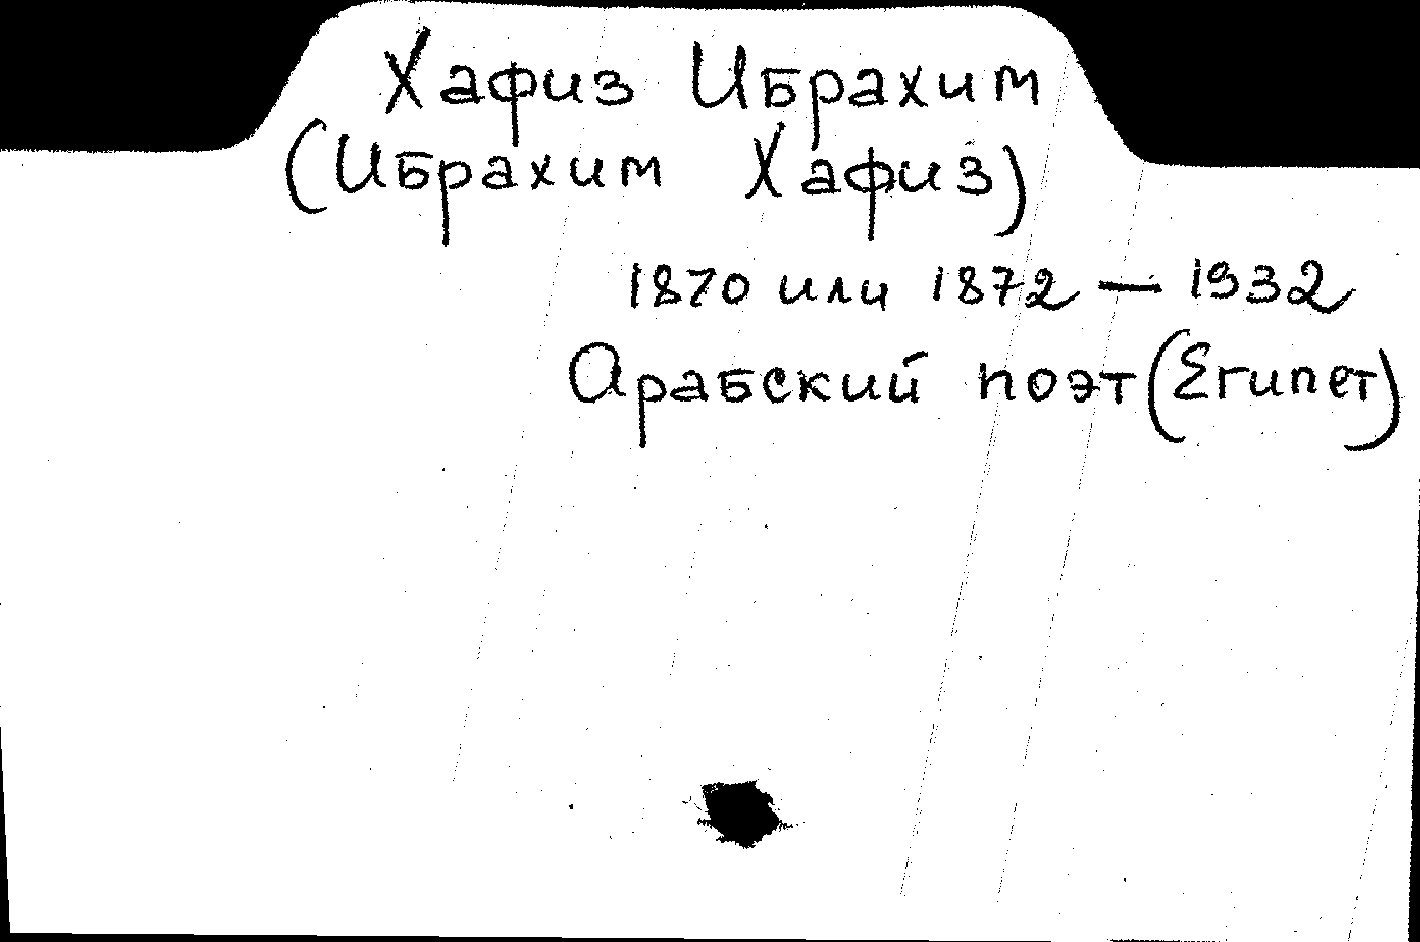 Хафиз Ибрахим
(Ибрахим Хафиз)
1870 или 1872 — 1932
Арабский поэт (Египет)